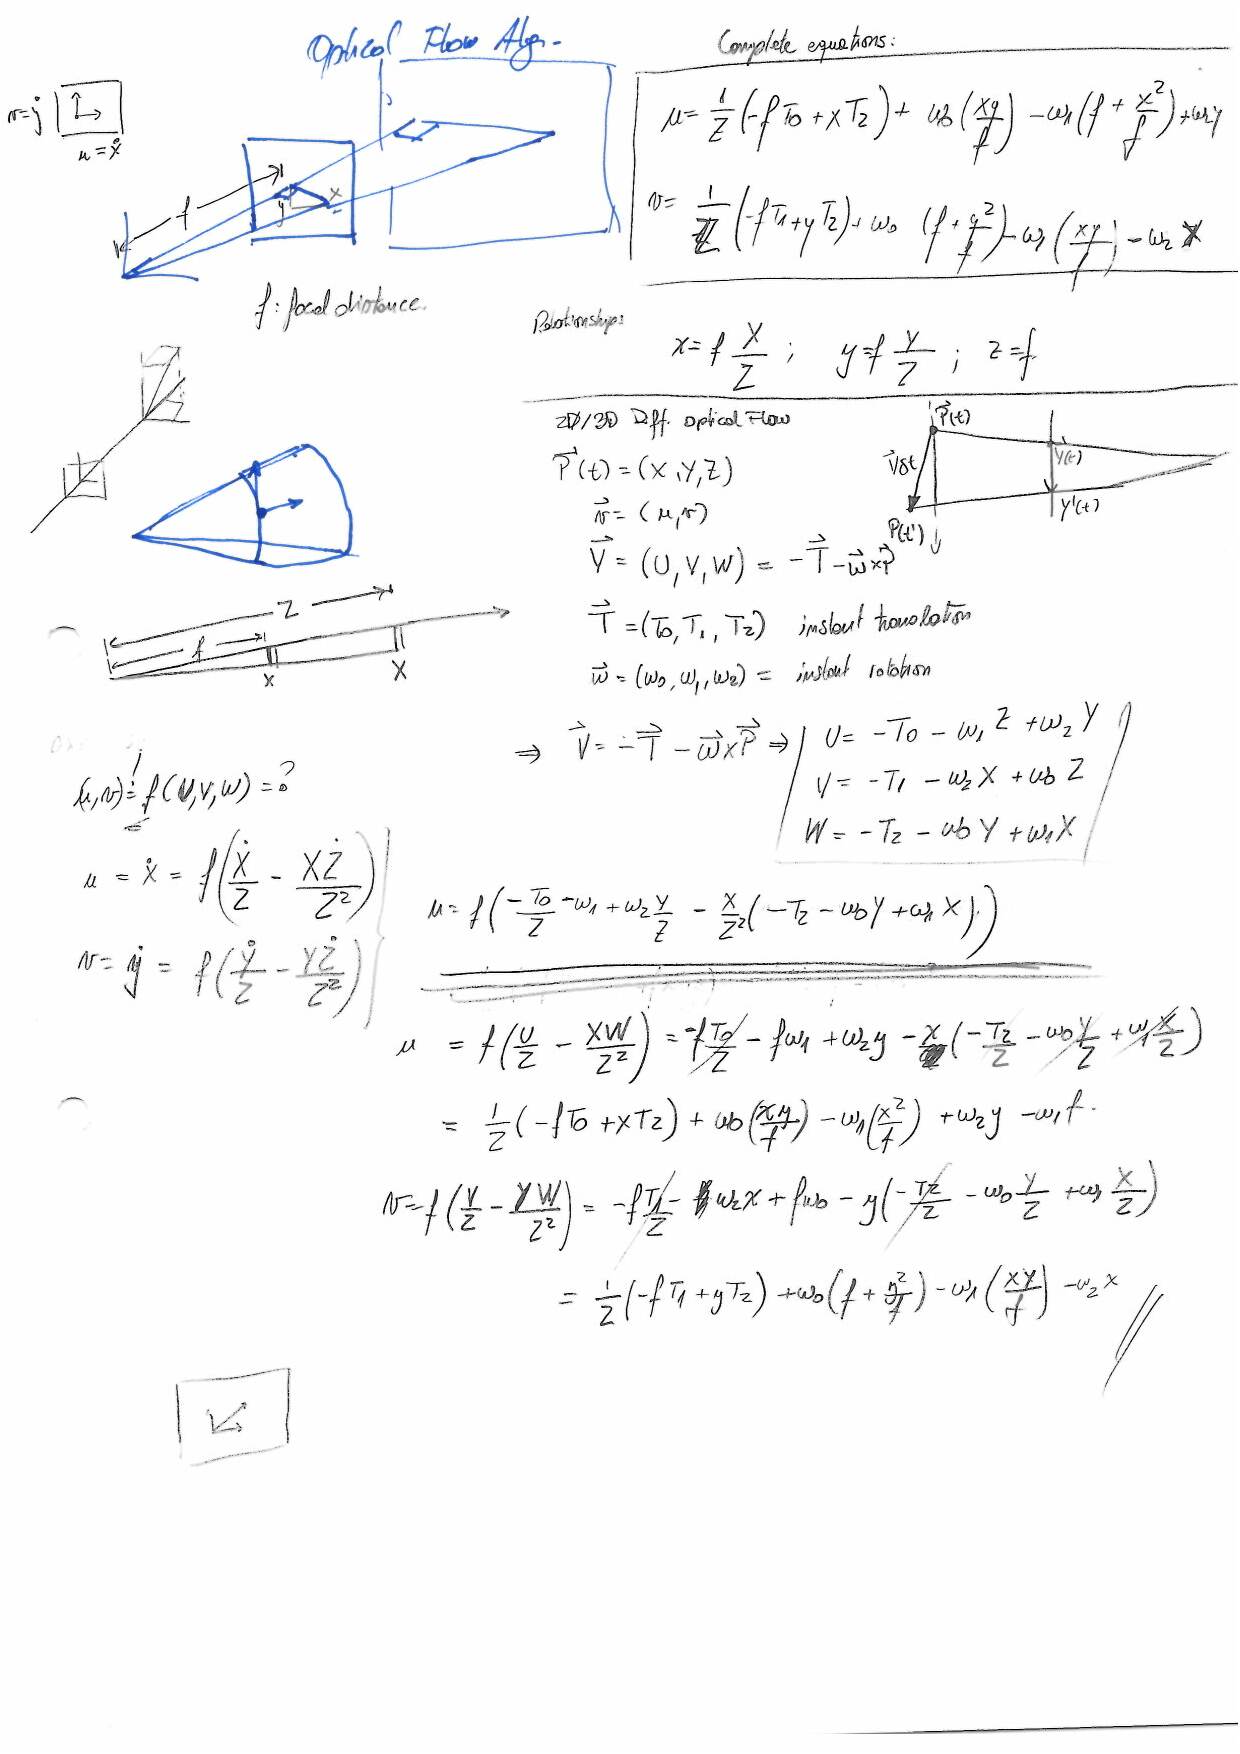 Optical Flow Alg.
Complete equations:
v=ẏ
u=ẋ
u = 1/Z (-fT0 + xT2) + ω0 (xy/f) - ω1 (f + x²/f) + ω2y
v = 1/Z (-fT1 + yT2) + ω0 (f + y²/f) - ω1 (xy/f) - ω2 x
f
y
x
f: focal distance.
Relationships:
x = f X/Z ; y = f Y/Z ; z = f
2D/3D Diff. Optical Flow
P⃗(t) = (X, Y, Z)
v⃗ = (u, v)
V⃗ = (U, V, W) = -T⃗ - ω⃗ x P⃗
T⃗ = (T0, T1, T2) instant translation
ω⃗ = (ω0, ω1, ω2) = instant rotation
P⃗(t)
V⃗δt
Y(t)
P(t')
Y'(t)
Z
f
x
X
⇒ V⃗ = -T⃗ - ω⃗ x P⃗ ⇒
U = -T0 - ω1 Z + ω2 Y
V = -T1 - ω2 X + ω0 Z
W = -T2 - ω0 Y + ω1 X
(u,v) = f(U,V,W) = ?
u = ẋ = f(Ẋ/Z - XŻ/Z²)
v = ẏ = f(Ẏ/Z - YŻ/Z²)
u = f(-T0/Z - ω1 + ω2 Y/Z - X/Z² (-T2 - ω0Y + ω1X))
u = f(U/Z - XW/Z²) = -fT0/Z - fω1 + ω2y - x(-T2/Z - ω0 Y/Z + ω1 X/Z)
= 1/Z (-fT0 + xT2) + ω0 (xy/f) - ω1 (x²/f) + ω2y - ω1f.
v = f(V/Z - YW/Z²) = -fT1/Z - ω2x + fω0 - y(-T2/Z - ω0 Y/Z + ω1 X/Z)
= 1/Z (-fT1 + yT2) + ω0 (f + y²/f) - ω1 (xy/f) - ω2 x